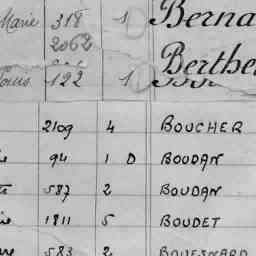 Marie 318 1 D Berna
2062
Louis 122 1 Berthe
2109 4 BOUCHER
94 1 D BOUDAN
587 2 BOUDAN
1811 5 BOUDET
583 2 BOUESNARD